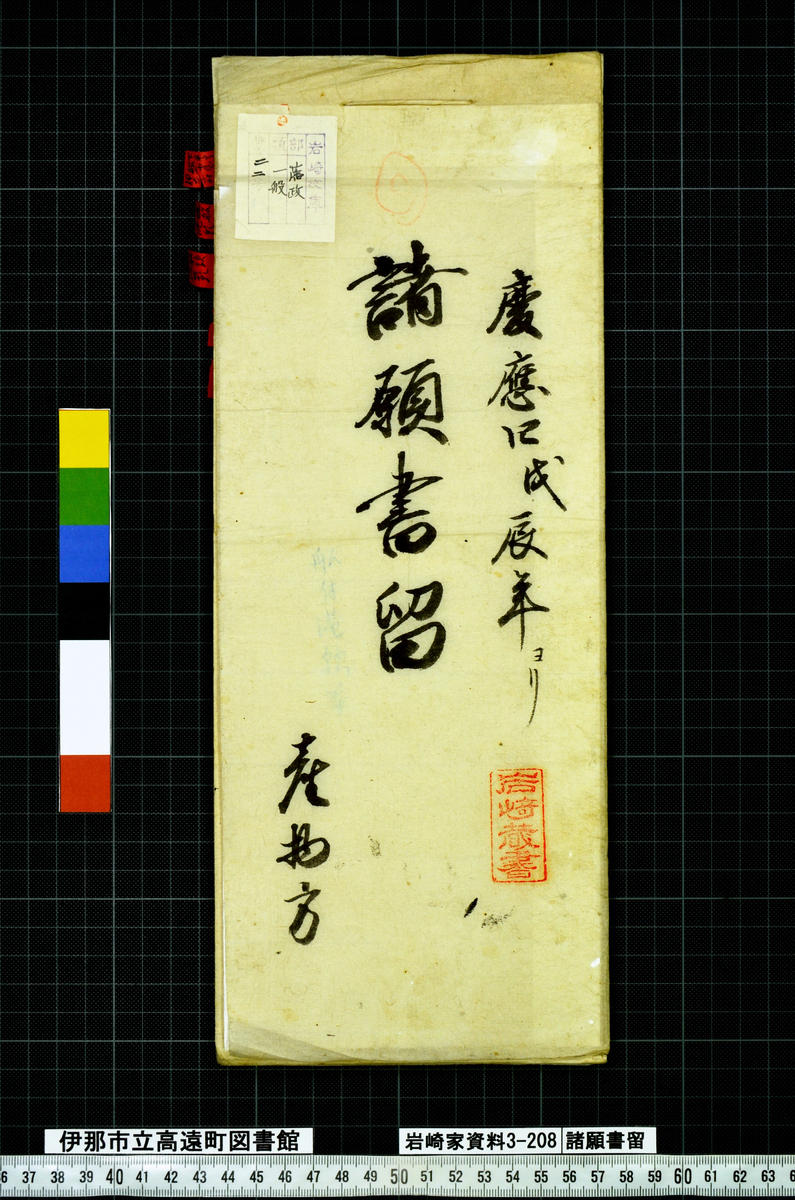 慶應四戊辰年ヨリ
諸願書留
産物方
岩崎蔵書
岩崎文庫
部 藩政
項 一般
二二
伊那市立高遠町図書館
岩崎家資料3-208
諸願書留
37 38 39 40 41 42 43 44 45 46 47 48 49 50 51 52 53 54 55 56 57 58 59 60 61 62 63